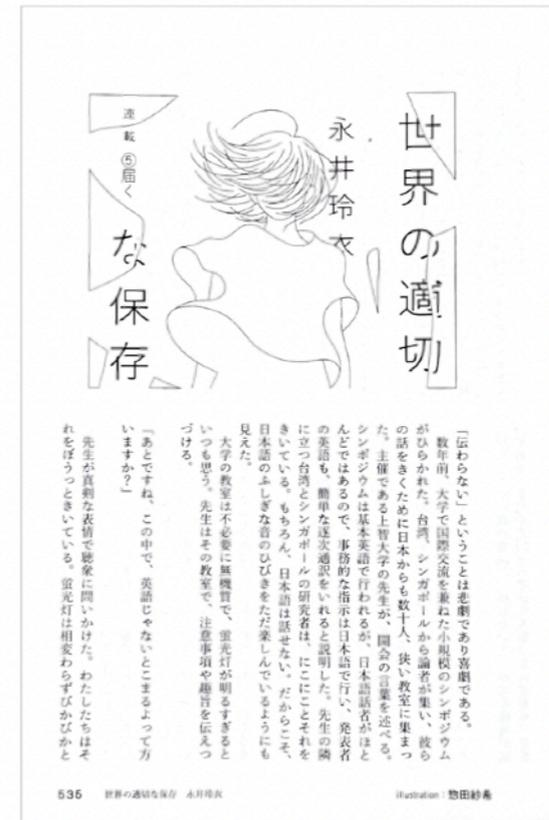 世界の適切
な保存
永井玲衣
連載⑤届く
「伝わらない」ということは悲劇であり喜劇である。
数年前、大学で国際交流を兼ねた小規模のシンポジウム
がひらかれた。台湾、シンガポールから論者が集い、彼ら
の話をきくために日本からも数十人、狭い教室に集まっ
た。主催である上智大学の先生が、開会の言葉を述べる。
シンポジウムは基本英語で行われるが、日本語話者がほと
んどではあるので、事務的な指示は日本語で行い、発表者
の英語も、簡単な逐次通訳をいれると説明した。先生の隣
に立つ台湾とシンガポールの研究者は、にこにことそれを
きいている。もちろん、日本語は話せない。だからこそ、
日本語のふしぎな音のひびきをただ楽しんでいるようにも
見えた。
大学の教室は不必要に無機質で、蛍光灯が明るすぎると
いつも思う。先生はその教室で、注意事項や趣旨を伝えつ
づける。
「あとですね、この中で、英語じゃないとこまるよって方
いますか?」
先生が真剣な表情で聴衆に問いかけた。わたしたちはそ
れをぼうっときいている。蛍光灯は相変わらずぴかぴかと
535 世界の適切な保存 永井玲衣
illustration:惣田紗希